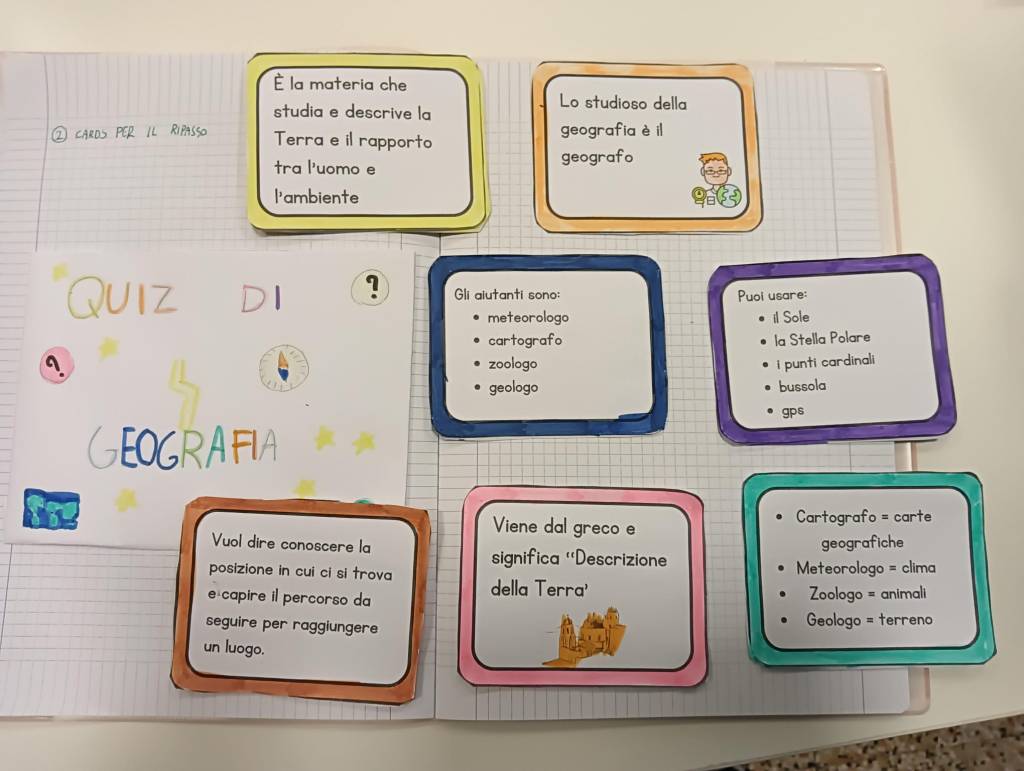 ② CARDS PER IL RIPASSO
È la materia che
studia e descrive la
Terra e il rapporto
tra l'uomo e
l'ambiente
Lo studioso della
geografia è il
geografo
QUIZ DI
?
?
GEOGRAFIA
Gli aiutanti sono:
• meteorologo
• cartografo
• zoologo
• geologo
Puoi usare:
• il Sole
• la Stella Polare
• i punti cardinali
• bussola
• gps
Vuol dire conoscere la
posizione in cui ci si trova
e capire il percorso da
seguire per raggiungere
un luogo.
Viene dal greco e
significa “Descrizione
della Terra’
• Cartografo = carte
geografiche
• Meteorologo = clima
• Zoologo = animali
• Geologo = terreno